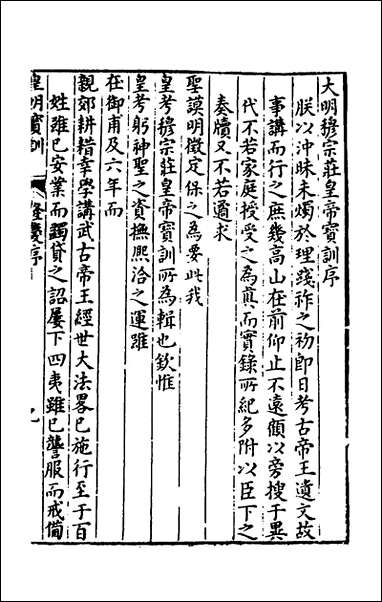 大明穆宗莊皇帝寶訓序
朕以沖昧未燭於理踐祚之初即日考古帝王遺文故
事講而行之庶幾高山在前仰止不遠顧以旁搜于異
代不若家庭授受之為真而實錄所紀多附以臣下之
奏牘又不若遹求
聖謨明徵定保之為要此我
皇考穆宗莊皇帝寶訓所為輯也欽惟
皇考躬神聖之資撫熙洽之運雖
在御甫及六年而
親郊耕耤幸學講武古帝王經世大法畧已施行至于百
姓雖已安業而蠲貸之詔屢下四夷雖已讋服而戒備
皇明寶訓
隆慶序